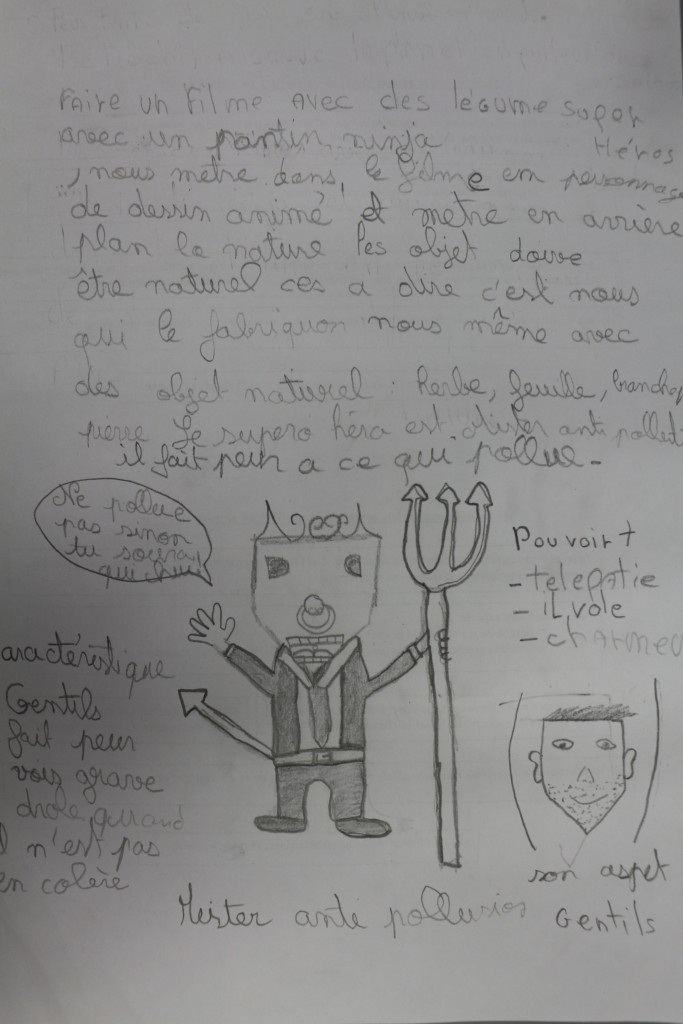 Faire un filme avec des légume super
Héros
avec un pantin ninja
, nous métre dans, le filme em personnage
de dessin animé et metre en arrière
plan la nature les objet doive
être naturel ces a dire c'est nous
qui le fabriquon nous même avec
des objet naturel : herbe, feuille, branche,
pierre Le supero héra est Mister anti polluti
il fait peur a ce qui pollue -
Ne pollue
pas sinon
tu soura
qui
Pouvoir +
- telepatie
- il vole
- charmeu
aractéristique
Gentils
fait peur
voix grave
drole quand
l n'est pas
en colère
son aspet
Gentils
Mister anti pollusios